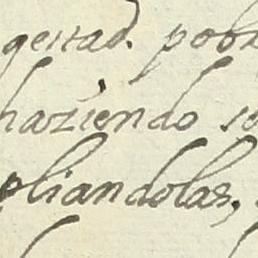 gestad. pobl
haziendo so
pliandolas,